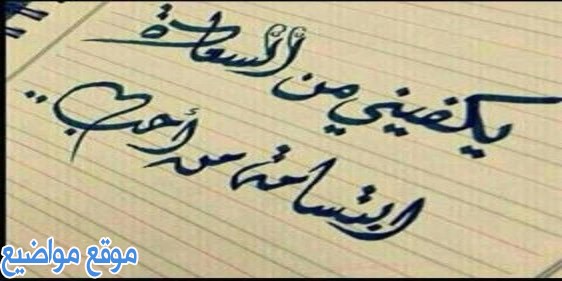 يكفيني من السعادة
ابتسامة من أحب ..
موقع مواضيع